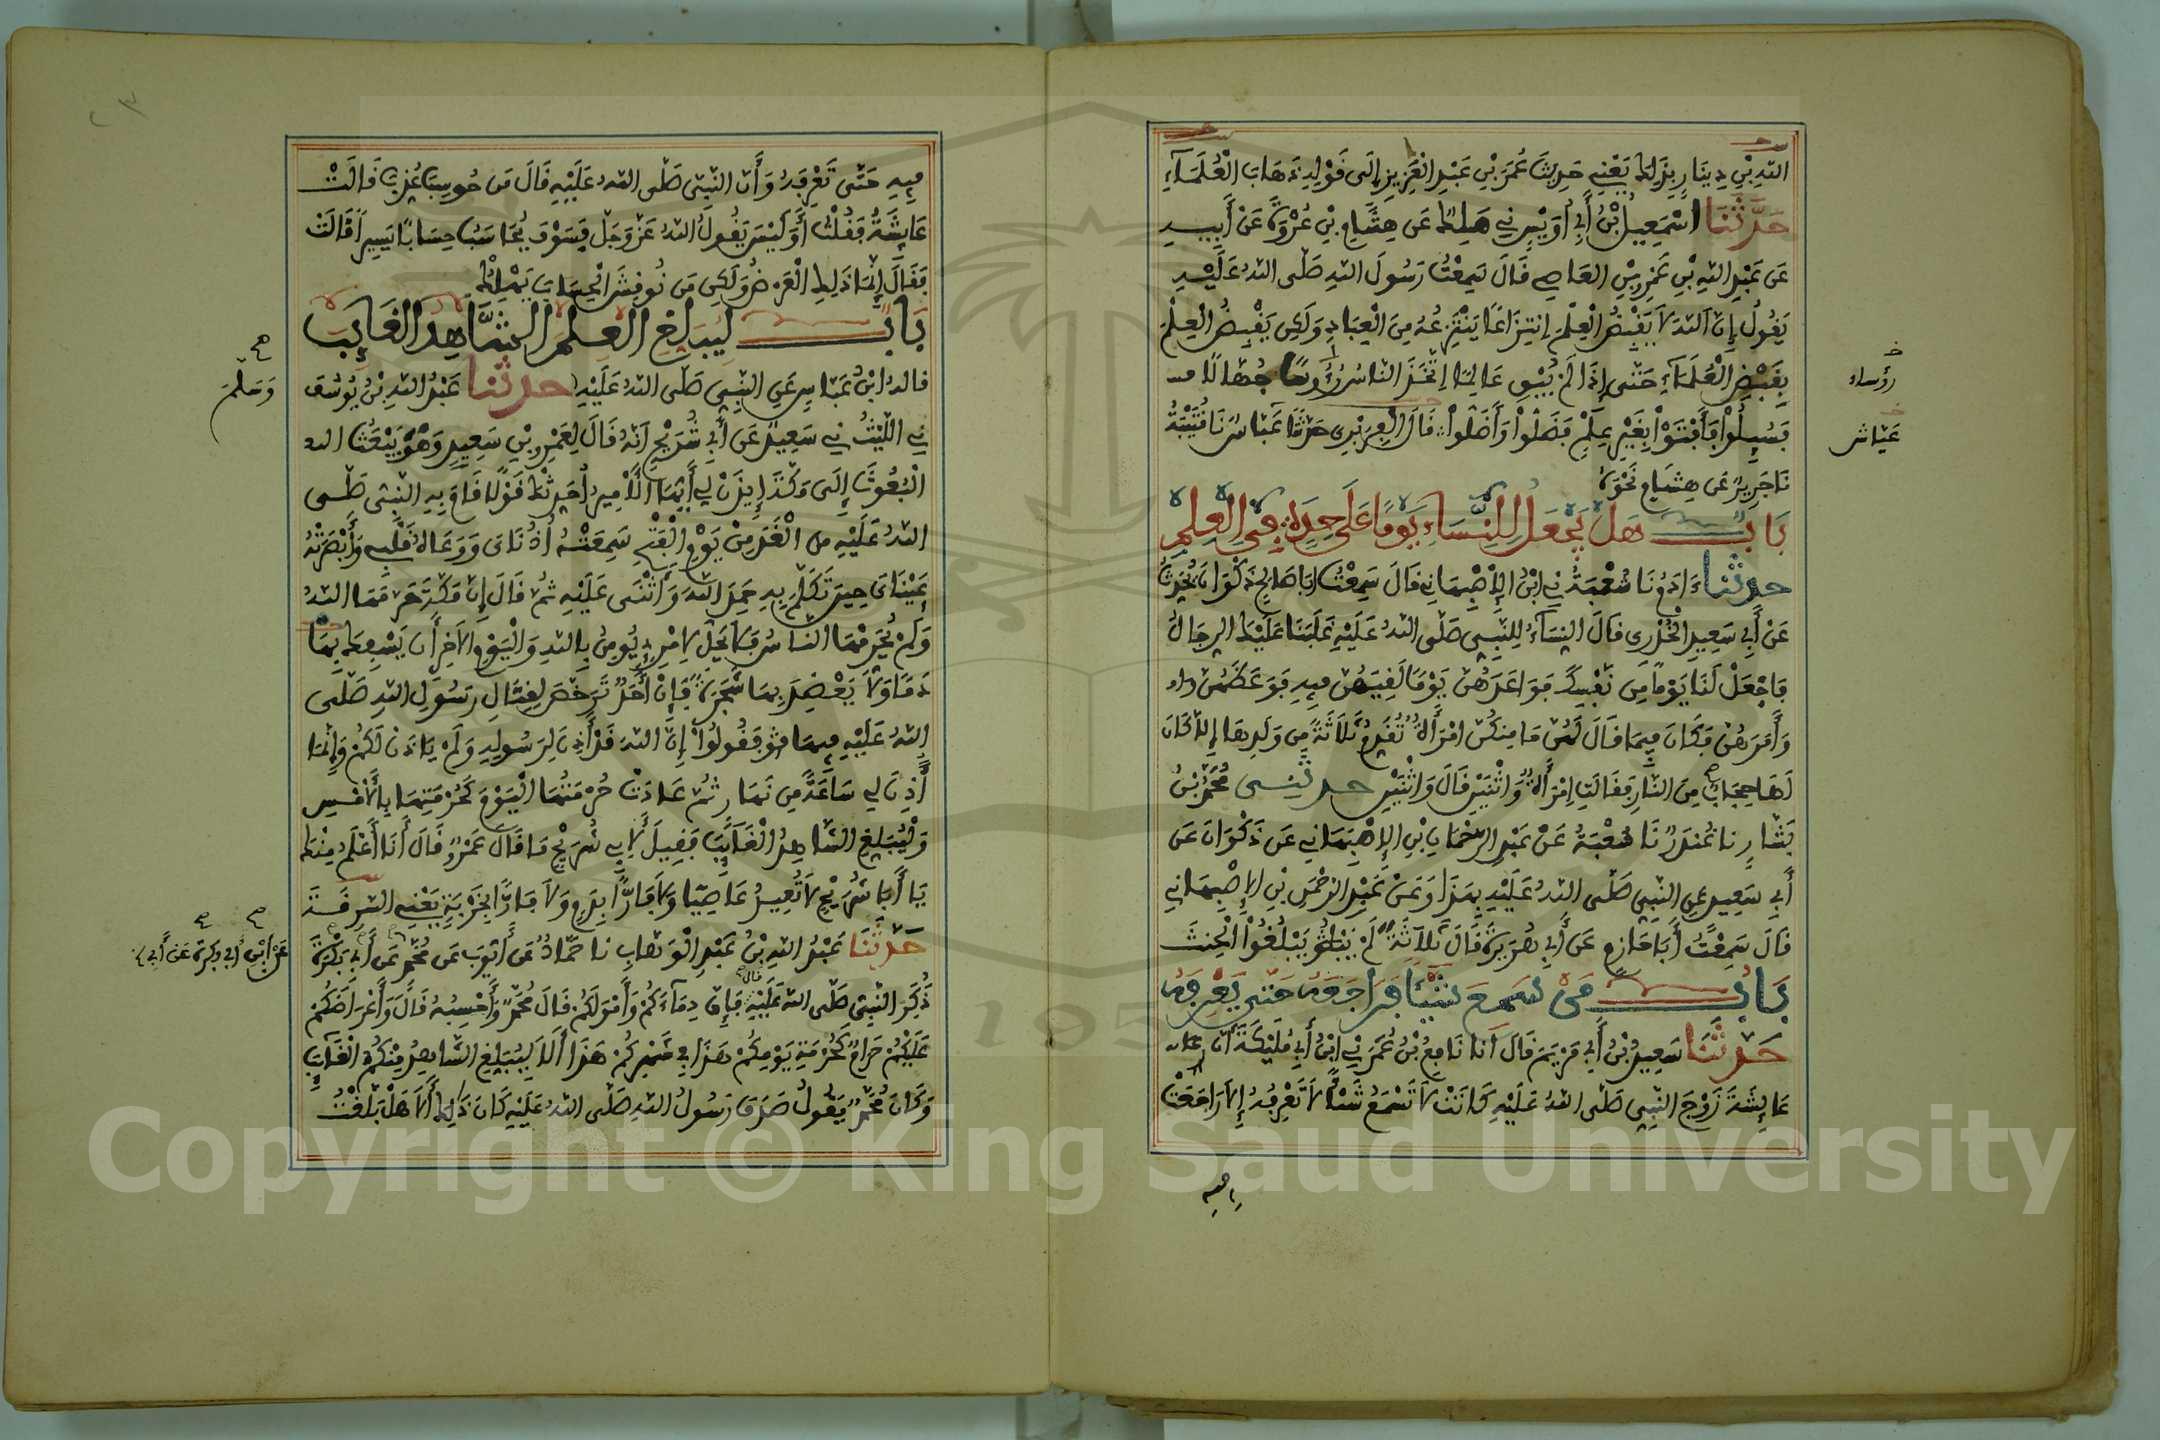 الله بن دينار بذلك يعني حديث عمر بن عبد العزيز إلى قوله ذهاب العلماء
حدثنا اسمعيل بن أبي أويس ني ملك عن هشام بن عروة عن أبيه
عن عبد الله بن عمرو بن العاصي قال سمعت رسول الله صلى الله عليه
يقول إن الله لا يقبض العلم إنتزاعا ينتزعه من العباد ولكن يقبض العلم
بقبض العلماء حتى إذا لم يبق عالما إتخذ الناس رؤوسا جهالا
فسيلوا فأفتوا بغير علم فضلوا وأضلوا قال الفربري حدثنا عباس نا قتيبة
نا جرير عن هشام نحوه
باب هل يجعل للنساء يوما على حدة في العلم
حدثنا ءادم نا شعبة ني ابن الإصبهاني قال سمعت ابا صالح ذكوان يحدث
عن أبي سعيد الخدري قال النساء للنبي صلى الله عليه غلبنا عليك الرجال
فاجعل لنا يوما من نفسك فواعدهن يوما لقيهن فيه فوعظهن
وأمرهن فكان فيما قال لهن ما منكن امرأة تقدم ثلاثة من ولدها إلا كان
لها حجاب من النار فقالت إمرأة واثنين قال واثنين حدثني محمد بن
بشار نا غندر نا شعبة عن عبد الرحمان بن الإصبهاني عن ذكوان عن
أبي سعيد عن النبي صلى الله عليه بهذا وعن عبد الرحمن بن الإصبهاني
قال سمعت أبا حازم عن أبي هريرة قال ثلاثة لم يبلغوا الحنث
باب من سمع شيئا فراجعه حتى يعرفه
حدثنا سعيد بن أبي مريم قال أنا نافع بن عمر ني ابن أبي مليكة أن
عايشة زوج النبي صلى الله عليه كانت لا تسمع شيئا لا تعرفه إلا راجعت
رؤساء
عياش
فيه
فيه حتى تعرفه وأن النبي صلى الله عليه قال من حوسب عذب قالت
عايشة فقلت أوليس يقول الله عز وجل فسوف يحاسب حسابا يسيرا قالت
فقال إنما ذلك العرض ولكن من نوقش الحساب يهلك
باب ليبلغ العلم الشاهد الغايب
قاله ابن عباس عن النبي صلى الله عليه حدثنا عبد الله بن يوسف
ني الليث ني سعيد عن أبي شريح أنه قال لعمرو بن سعيد وهو يبعث
البعوث إلى مكة إيذن لي أيها الأمير أحدثك قولا قام به النبي صلى
الله عليه الغد من يوم الفتح سمعته أذناي ووعاه قلبي وأبصرته
عيناي حين تكلم به حمد الله وأثنى عليه ثم قال إن مكة حرمها الله
ولم يحرمها الناس فلا يحل لامرئ يومن بالله واليوم الاخر أن يسفك بها
دما ولا يعضد بها شجرة فإن أحد ترخص لقتال رسول الله صلى
الله عليه فيها فقولوا إن الله قد أذن لرسوله ولم ياذن لكم وإنما
أذن لي ساعة من نهار ثم عادت حرمتها اليوم كحرمتها بالأمس
وليبلغ الشاهد الغايب فقيل لأبي شريح ما قال عمرو قال أنا أعلم منك
يا أبا شريح لا تعيذ عاصيا ولا فارا بدم ولا فارا بخربة يعني السرقة
حدثنا عبد الله بن عبد الوهاب نا حماد عن أيوب عن محمد عن أبي بكرة
ذكر النبي صلى الله عليه قال فإن دماءكم وأمولكم قال محمد وأحسبه قال وأعراضكم
عليكم حرام كحرمة يومكم هذا في شهركم هذا ألا ليبلغ الشاهد منكم الغايب
وكان محمد يقول صدق رسول الله صلى الله عليه كان ذلك ألا هل بلغت
وسلم
عن ابن أبي بكرة عن أبي
Copyright © King Saud University
195